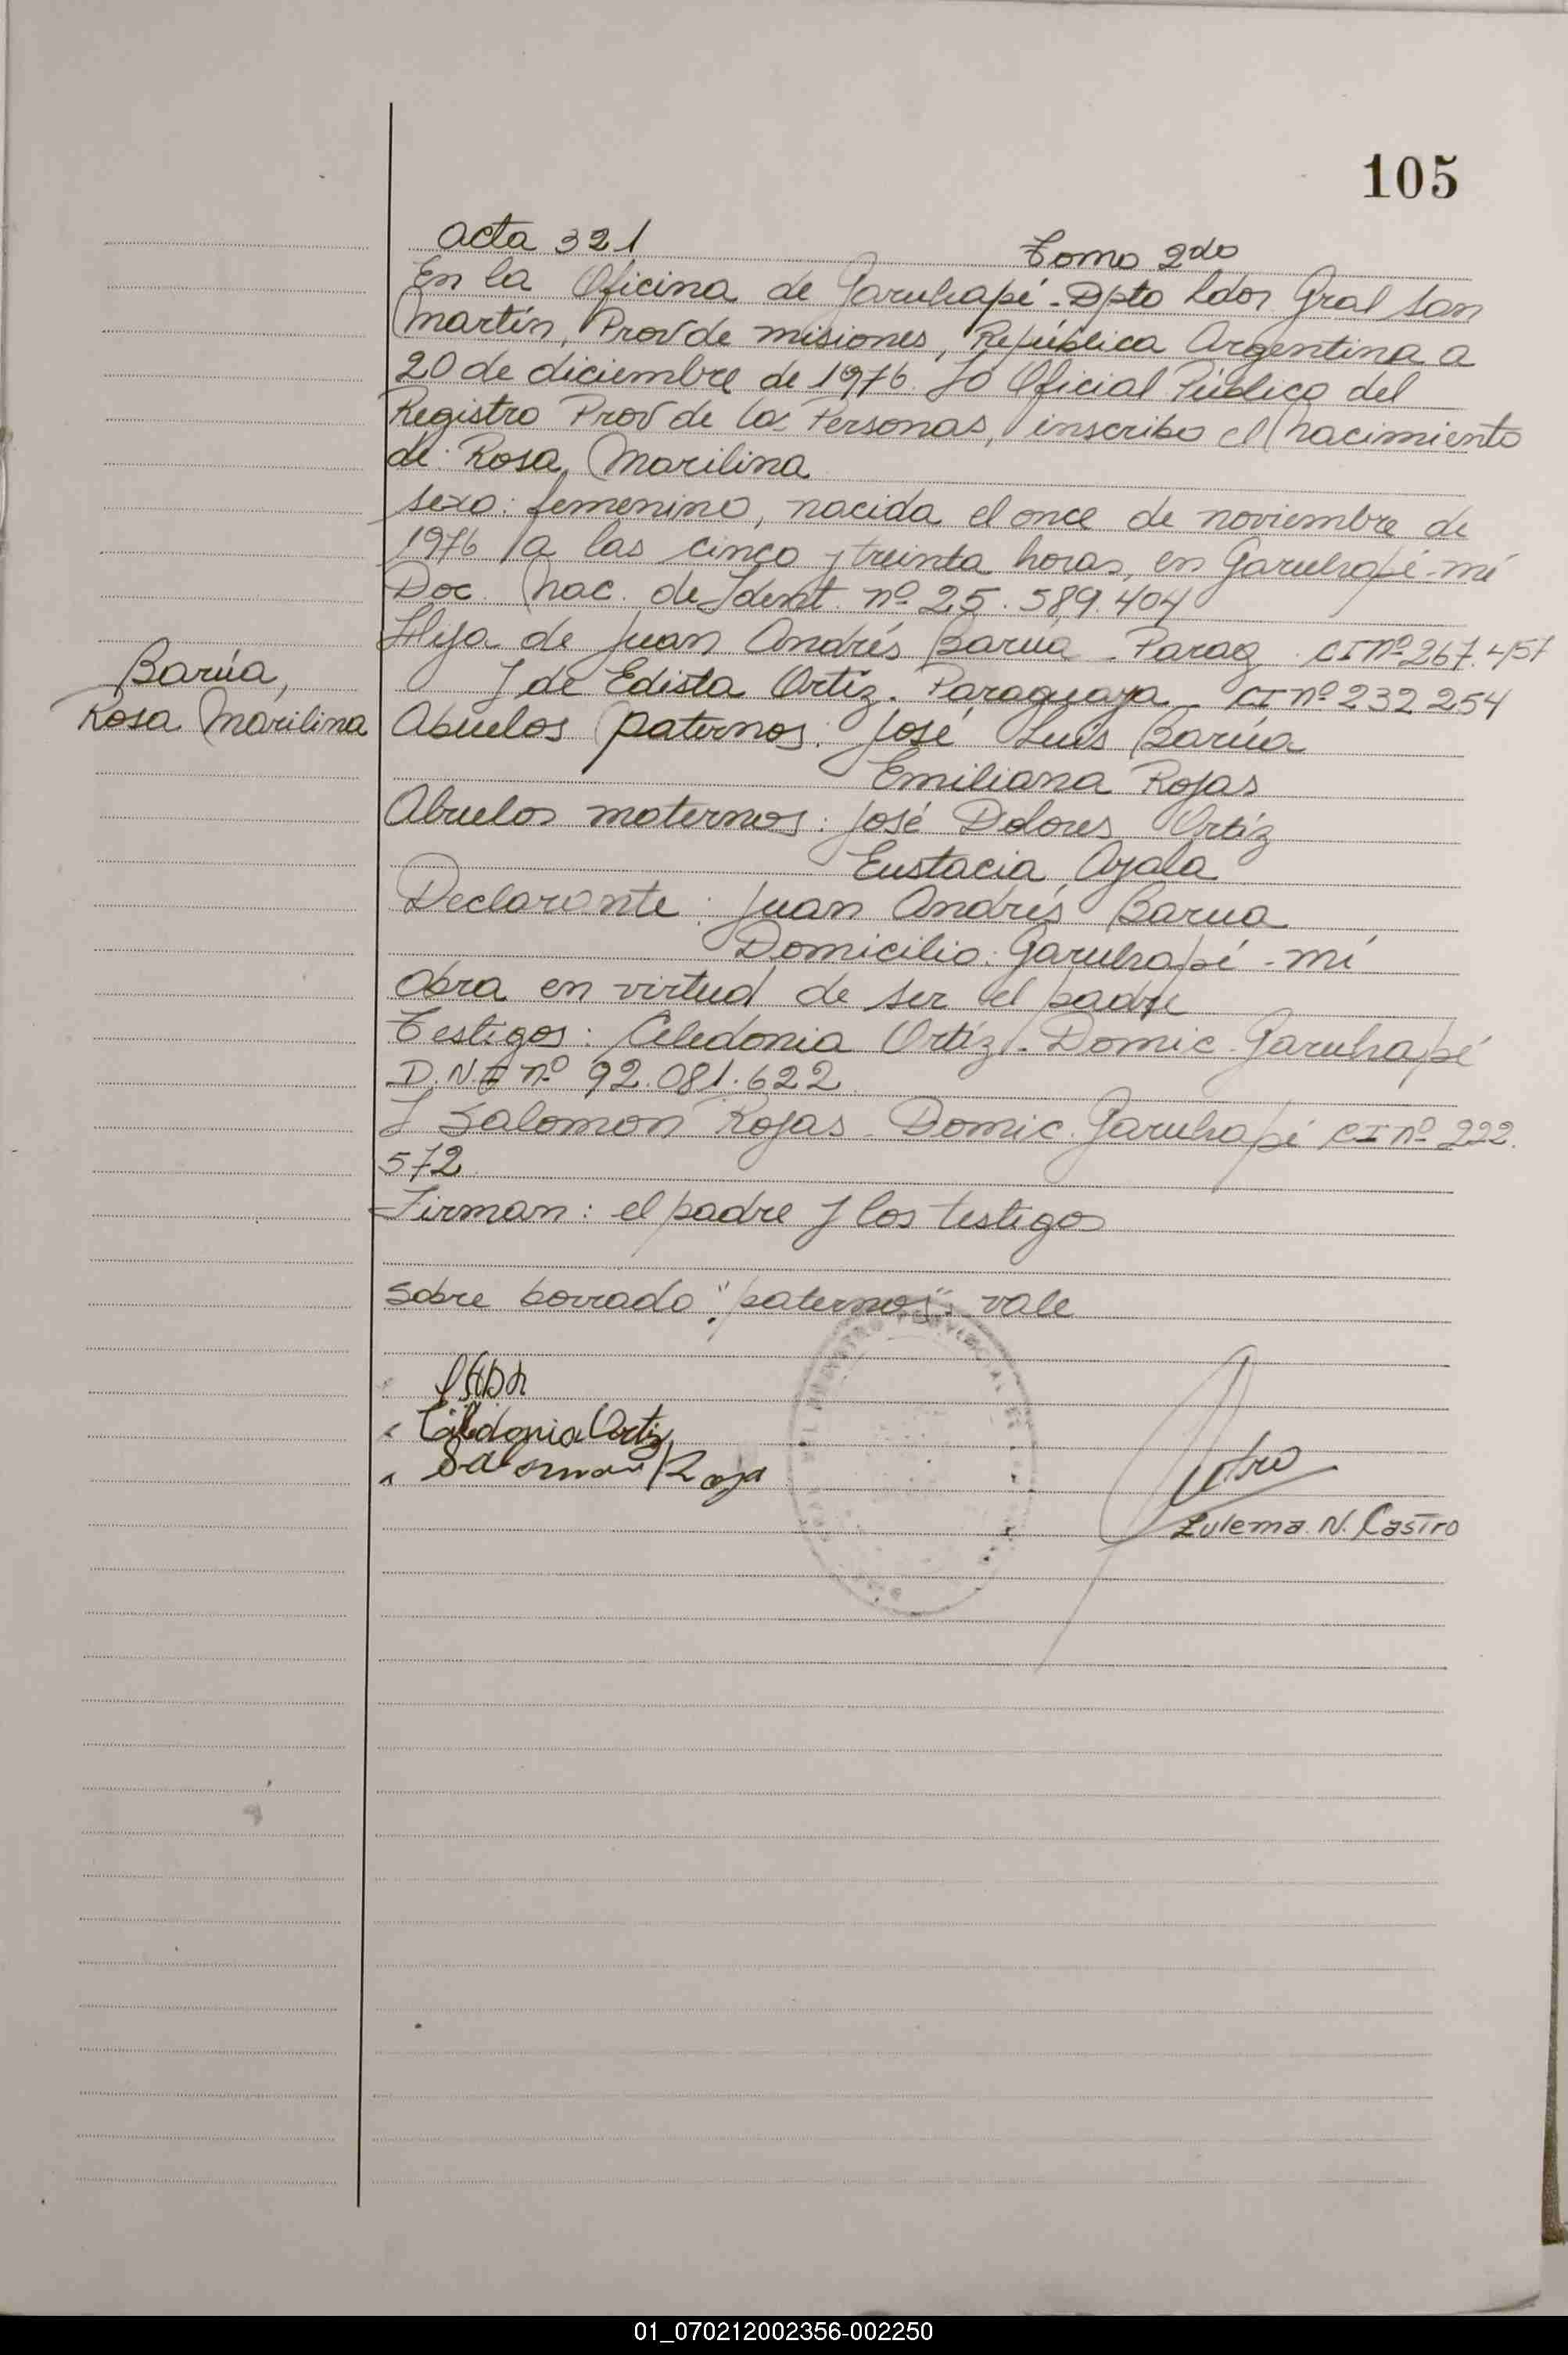 105
acta 321 Tomo 2do
En la Oficina de Garuhapé - Dpto Ldor Gral San
Martín, Prov de misiones, República Argentina a
20 de diciembre de 1976. Yo Oficial Público del
Registro Prov de las Personas, inscribo el nacimiento
de: Rosa Marilina
sexo: femenino, nacida el once de noviembre de
1976 a las cinco y treinta horas, en Garuhapé-mí
Doc. Nac. de Ident. nº 25.589.404
Hija de Juan Andrés Barúa - Parag. CI nº 267.457
Y de Edista Ortiz. Paraguaya - CI nº 232 254
Barúa,
Rosa Marilina
Abuelos paternos: José Luis Barúa
Emiliana Rojas
Abuelos maternos: José Dolores Ortíz
Eustacia Ayala
Declarante: Juan Andrés Barua
Domicilio: Garuhapé - mí
Obra en virtud de ser el padre
Testigos: Celedonia Ortíz - Domic. Garuhapé
D.N.I nº 92.081.622
Y Salomon Rojas - Domic. Garuhapé CI nº 222.
572
Firman: el padre y los testigos
Sobre borrado: "paternos": vale
Celedonia Ortiz
Salomon Roja
Zulema N. Castro
01_070212002356-002250